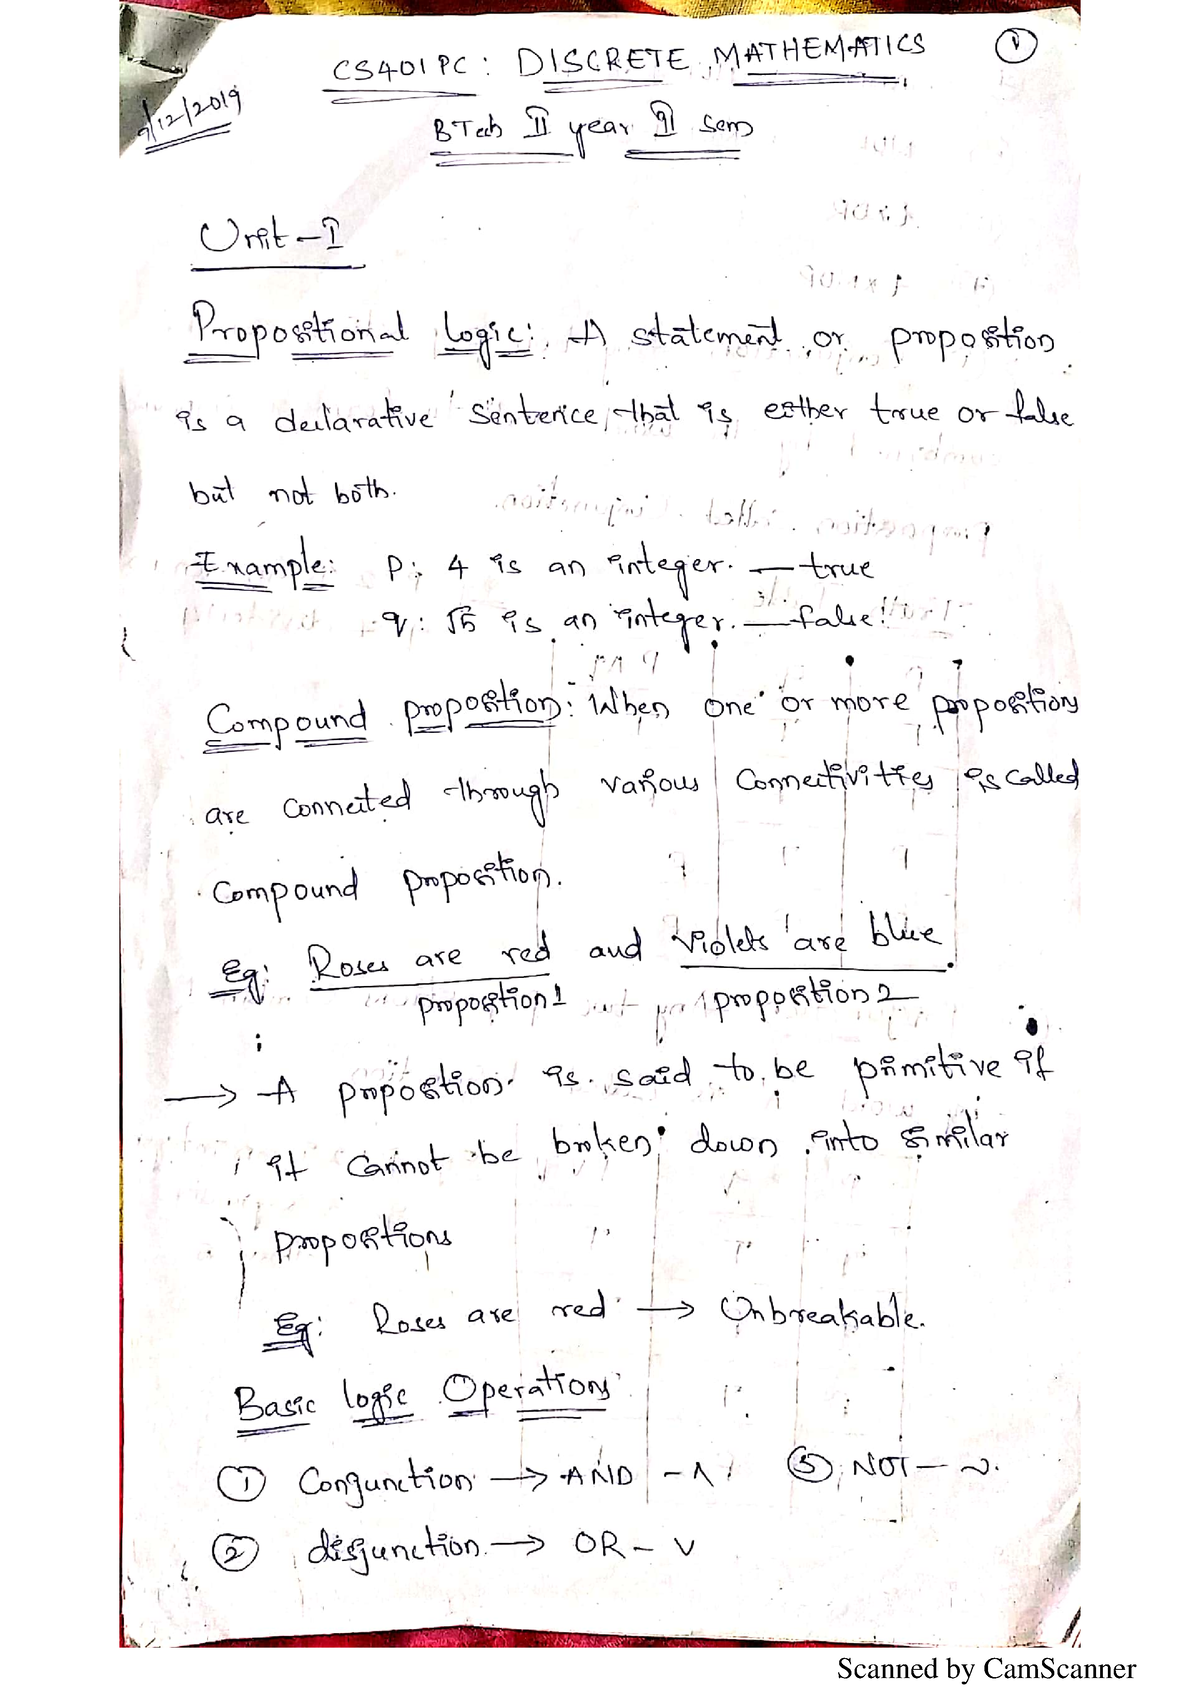 CS401PC: DISCRETE MATHEMATICS
1
/12/2019
BTech II year II sem
Unit-I
Propositional logic: A statement or proposition
is a declarative sentence that is either true or false
but not both.
Example: P: 4 is an integer. — true
q: √5 is an integer. — false
Compound proposition: When one or more propositions
are connected through various Connectivities is called
Compound proposition.
Eg: Roses are red and Violets are blue
proposition 1 proposition 2
→ A proposition is said to be primitive if
it cannot be broken down into similar
propositions
Eg: Roses are red → Unbreakable.
Basic logic Operations
① Conjunction → AND - ∧ ③ NOT - ~.
② disjunction → OR - ∨
Scanned by CamScanner